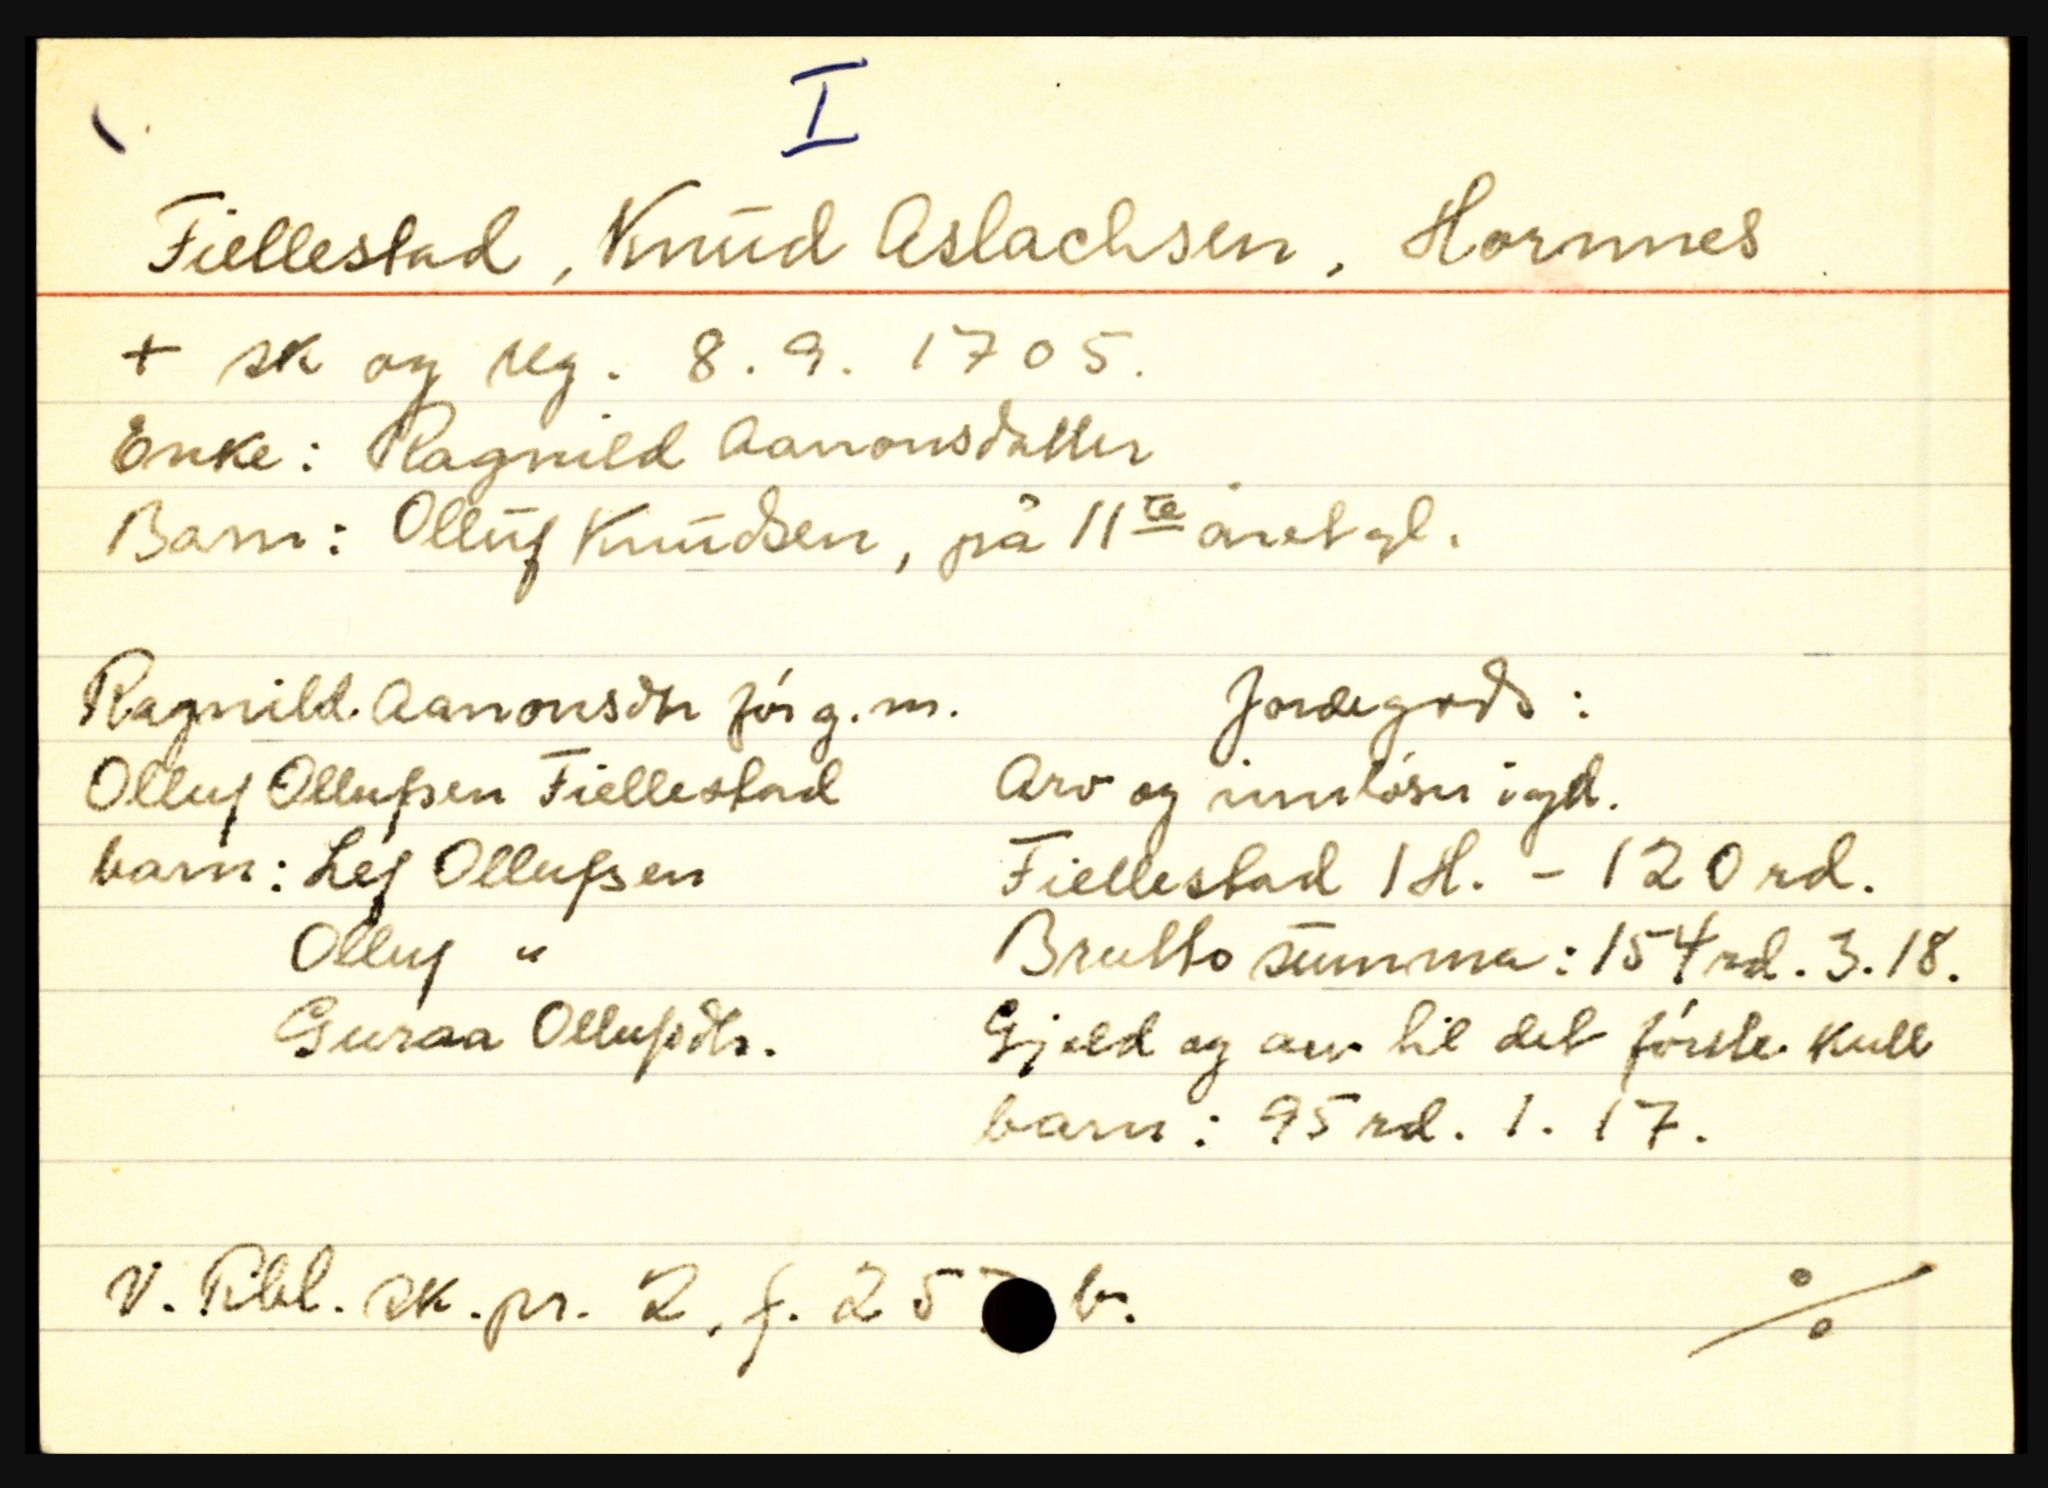 I
Fiellestad, Knud Aslachsen, Hornnes
+ sk og reg. 8.9.1705.
Enke: Ragnild Aanonsdatter
Barn: Olluf Knudsen, på 11te året gl.
Ragnild Aanonsdtr før g.m.
Olluf Ollufsen Fiellestad
barn: Lef Ollufsen
Olluf "
Guraa Ollufsdtr.
Jordegods:
Arv og innløsn i gd.
Fiellestad 1 H. - 120 rd.
Brutto summa: 154 rd. 3. 18.
Gjeld og arv til det første kull
barn: 95 rd. 1. 17.
V. Rbl. sk. pr. 2, f. 25 b.
%